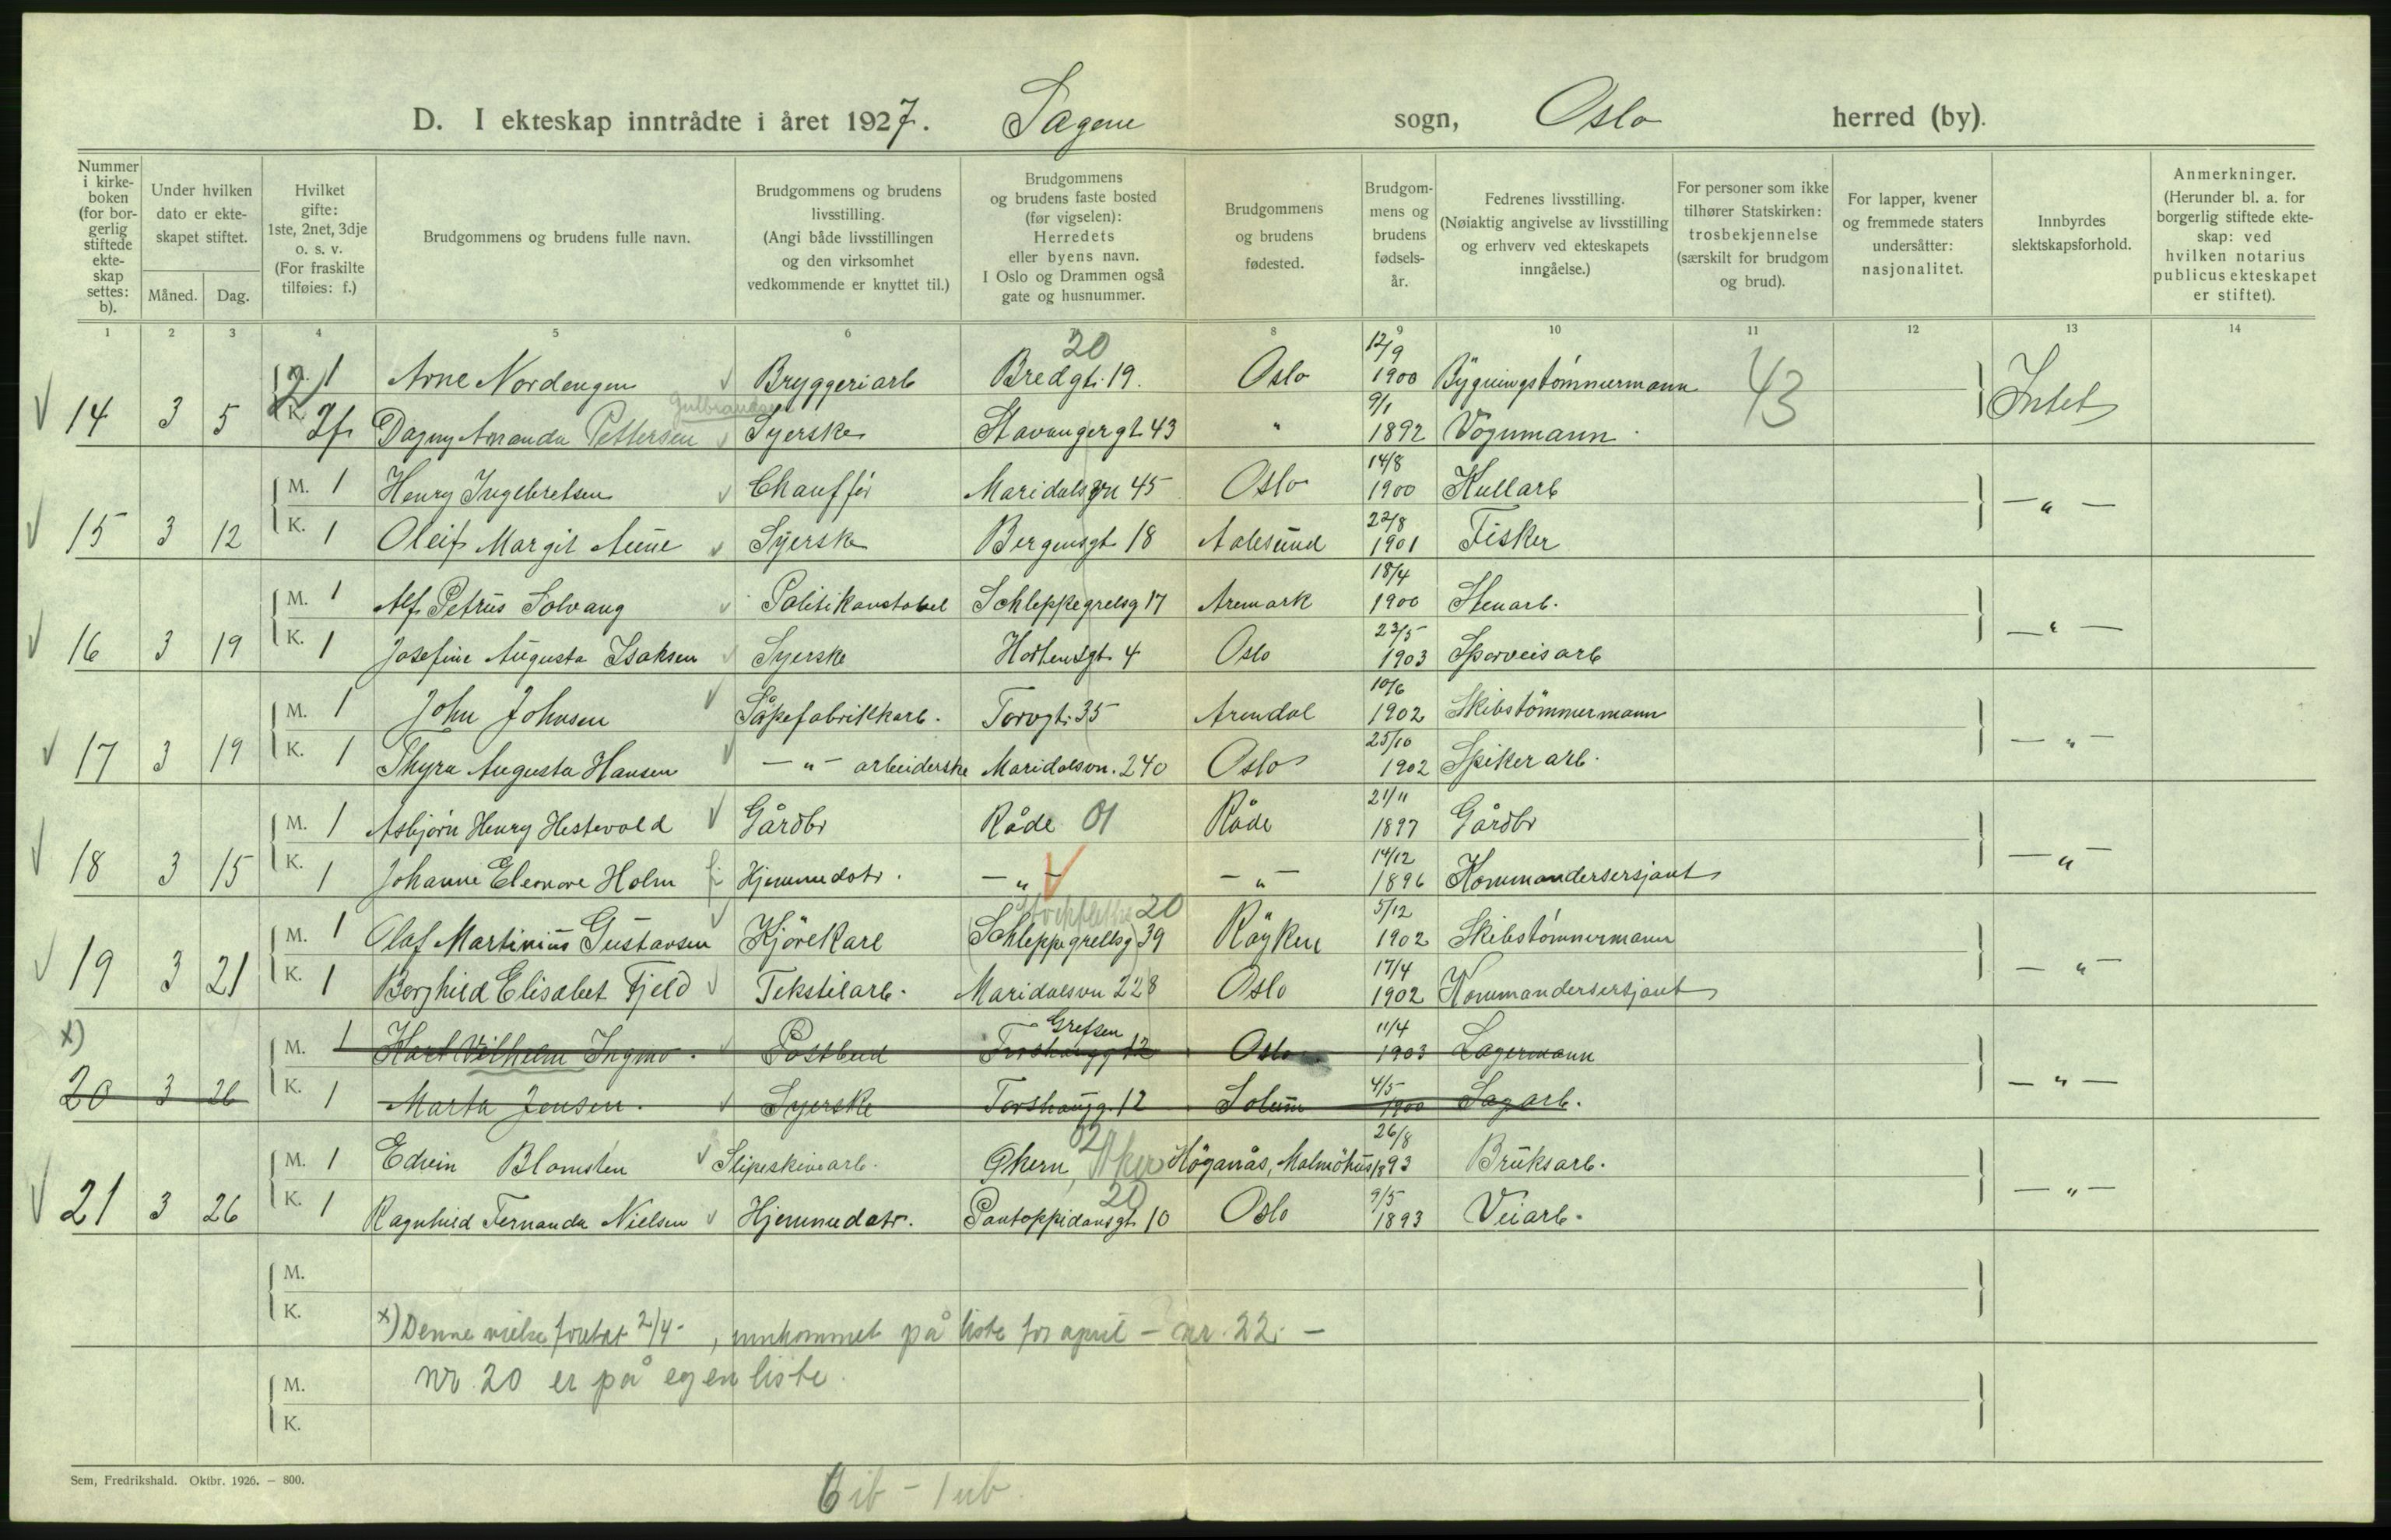 D. I ekteskap inntrådte i året 1927. Sagene sogn, Oslo herred (by).
Nummer i kirkeboken (for borgerlig stiftede ekteskap settes: b).
Under hvilken dato er ekteskapet stiftet.
Måned. Dag.
Hvilket gifte: 1ste, 2net, 3dje o. s. v. (For fraskilte tilføies: f.)
Brudgommens og brudens fulle navn.
Brudgommens og brudens livsstilling. (Angi både livsstillingen og den virksomhet vedkommende er knyttet til.)
Brudgommens og brudens faste bosted (før vigselen): Herredets eller byens navn. I Oslo og Drammen også gate og husnummer.
Brudgommens og brudens fødested.
Brudgommens og brudens fødselsår.
Fedrenes livsstilling. (Nøiaktig angivelse av livsstilling og erhverv ved ekteskapets inngåelse.)
For personer som ikke tilhører Statskirken: trosbekjennelse (særskilt for brudgom og brud).
For lapper, kvener og fremmede staters undersåtter: nasjonalitet.
Innbyrdes slektskapsforhold.
Anmerkninger. (Herunder bl. a. for borgerlig stiftede ekteskap: ved hvilken notarius publicus ekteskapet er stiftet).
1 2 3 4 5 6 8 9 10 11 12 13 14
20
M. 1 Arne Nordengen Bryggeriarb Bredgt. 19. Oslo 12/9 1900 Bygningstömmermann 43 Intet
Gulbrandsen
14 3 5 K. 2f Dagny Amanda Pettersen Syerske Stavangergt 43 " 9/1 1892 Vognmann
M. 1 Henry Ingebretsen Chauffør Maridalsvn 45 Oslo 14/8 1900 Kullarb — " —
15 3 12 K. 1 Oleif Margit Aune Syerske Bergensgt 18 Aalesund 22/8 1901 Fisker
M. 1 Alf Petrus Solvang Politikonstabel Schleppegrelsg 17 Aremark 18/4 1900 Stenarb. — " —
16 3 19 K. 1 Josefine Augusta Isaksen Syerske Hortensgt. 4 Oslo 23/5 1903 Sporveisarb
M. 1 John Johnsen Såpefabrikkarb. Torvgt. 35 Arendal 10/6 1902 Skibstömmermann — " —
17 3 19 K. 1 Thyra Augusta Hansen — " — arbeiderske Maridalsvn. 240 Oslo 25/10 1902 Spikerarb.
M. 1 Asbjørn Henry Hestevold Gårdbr Råde 01 Råde 21/11 1897 Gårdbr — " —
18 3 15 K. 1 Johanne Eleonore Holm Hjemmedatr. — " — — " — 14/12 1896 Kommandersersjant
20
M. 1 Olaf Martinius Gustavsen Kjörekarl (Schleppegrellsg) 39 Röyken 5/12 1902 Skibstömmermann — " —
19 3 21 K. 1 Borghild Elisabet Fjeld Tekstilarb. Maridalsvn 228 Oslo 17/4 1902 Kommandersersjant
x) Grefsen
M. 1 Karl Vilhelm Ingmo. Postbud Torshaugg 12 Oslo 11/4 1903 Lagermann — " —
20 3 26 K. 1 Marta Jensen. Syerske Torshaugg. 12 Solum 4/5 1900 Sagarb.
02
M. 1 Edvin Blomsten Slipeskivearb. Økern, Aker Höganäs, Malmöhus 26/8 1893 Bruksarb. — " —
20
21 3 26 K. 1 Ragnhild Fernanda Nielsen Hjemmedatr. Pontoppidansgt 10 Oslo 9/5 1893 Veiarb.
M.
K.
x) Denne vielse foretat 2/4 -, innkommet på liste for april - nr. 22. -
nr 20 er på egen liste.
M.
K.
Sem, Fredrikshald. Oktbr. 1926. — 800.
6 ib - 1 ub.